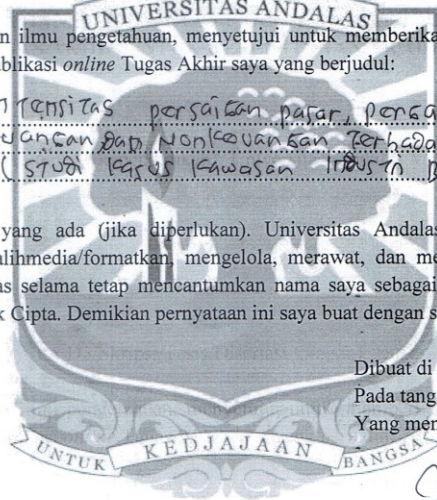 UNIVERSITAS ANDALAS
n ilmu pengetahuan, menyetujui untuk memberika
blikasi online Tugas Akhir saya yang berjudul:
persaingan pasar,
dan Nonkeuangan terhada
(Studi Kasus Kawasan Industri
yang ada (jika diperlukan). Universitas Andalas
alihmedia/formatkan, mengelola, merawat, dan me
as selama tetap mencantumkan nama saya sebagai
k Cipta. Demikian pernyataan ini saya buat dengan s
Dibuat di
Pada tang
Yang men
UNTUK KEDJAJAAN BANGSA